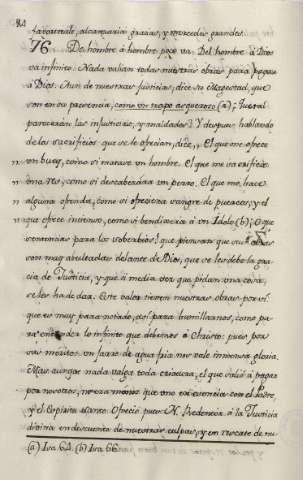 favorecido, alcanzaria gracias, y mercedes grandes.
76 De hombre à hombre poco va. Del hombre à Dios
va infinito. Nada valian todas nuestras obras para pagar
à Dios. Aun de nuestras justicias, dice su Magestad, que
son en su presencia, como un trapo asqueroso (a); Que tal
pareceràn las injusticias, y maldades? Y despues hablando
de los sacrificios que se le ofrecian, dice,, El que me ofrece
,, un buey, como si matara un hombre. El que me sacrifica
,, una res, como si descabezara un perro. El que me hace
,, alguna ofrenda, como si ofreciera sangre de puercos, y el
,, que ofrece incienso, como si bendixera à un Idolo (b); O que
sentencias para los soberbios! que piensan que sus obras
son muy agradables delante de Dios, que se les debe la gra-
cia de Justicia, y que à media voz que pidan una cosa,
se les ha de dar. Este valor tienen nuestras obras por si:
que es muy para notado, assi para humillarnos, como pa-
ra conocer lo infinito que debemos à Christo: pues por
sus meritos un jarro de agua fria nos vale inmensa gloria.
Mas aunque nada valga toda criatura, el que valiò à pagar
por nosotros, no era menos que una existencia con el Padre,
y el Espiritu Santo. Ofreciò pues N. Redentor à la Justicia
divina en descuento de nuestras culpas, y en rescate de nu-
(a) Isa 64. (b) Isa 66.